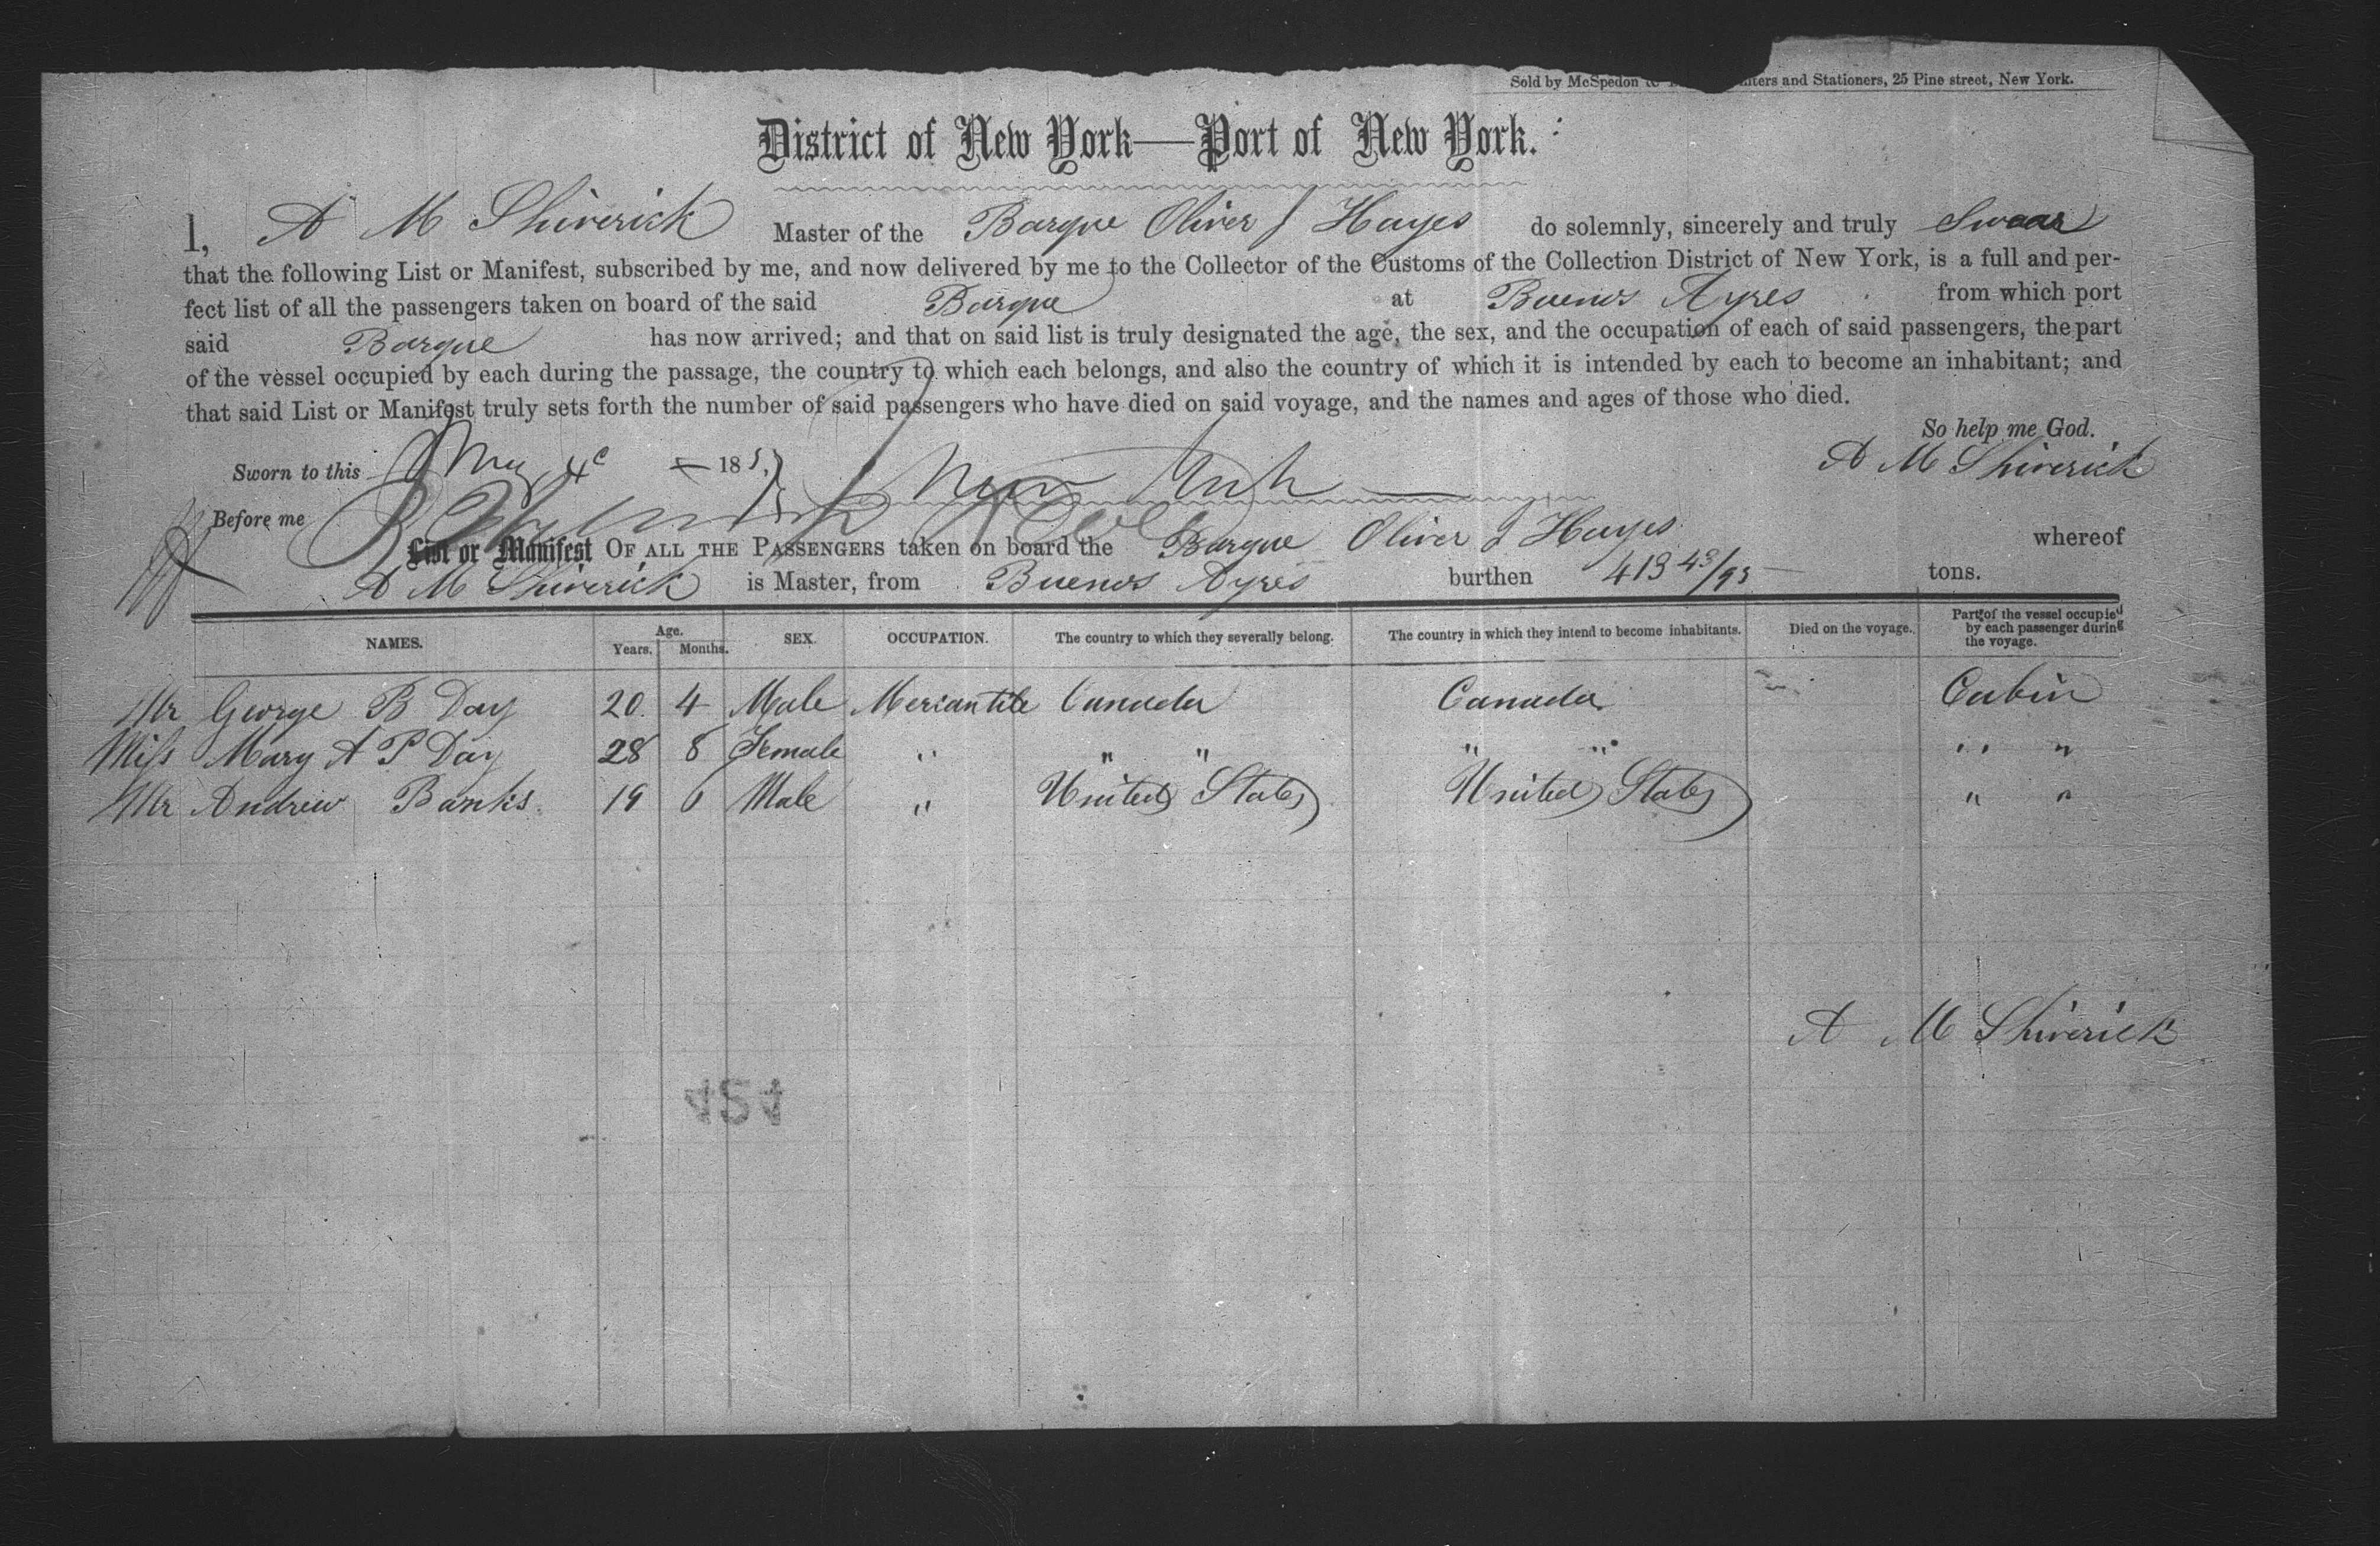 Sold by McSpedon & nters and Stationers, 25 Pine street, New York.
District of New York—Port of New York.
I, A M Shiverick Master of the Barque Oliver J Hayes do solemnly, sincerely and truly Swear
that the following List or Manifest, subscribed by me, and now delivered by me to the Collector of the Customs of the Collection District of New York, is a full and per-
fect list of all the passengers taken on board of the said Barque at Buenos Ayres from which port
said Barque has now arrived; and that on said list is truly designated the age, the sex, and the occupation of each of said passengers, the part
of the vessel occupied by each during the passage, the country to which each belongs, and also the country of which it is intended by each to become an inhabitant; and
that said List or Manifest truly sets forth the number of said passengers who have died on said voyage, and the names and ages of those who died.
So help me God.
Sworn to this May 4 185 A M Shiverick
Before me
List or Manifest OF ALL THE PASSENGERS taken on board the Barque Oliver J Hayes whereof
A M Shiverick is Master, from Buenos Ayres burthen 413 43/95 tons.
NAMES. Age. Years. Months. SEX. OCCUPATION. The country to which they severally belong. The country in which they intend to become inhabitants. Died on the voyage. Part of the vessel occupied by each passenger during the voyage.
Mr George B Day 20 4 Male Mercantile Canada Canada Cabin
Miss Mary A P Day 28 8 Female " " " " " " "
Mr Andrew Banks 19 6 Male " United States United States " "
A M Shiverick